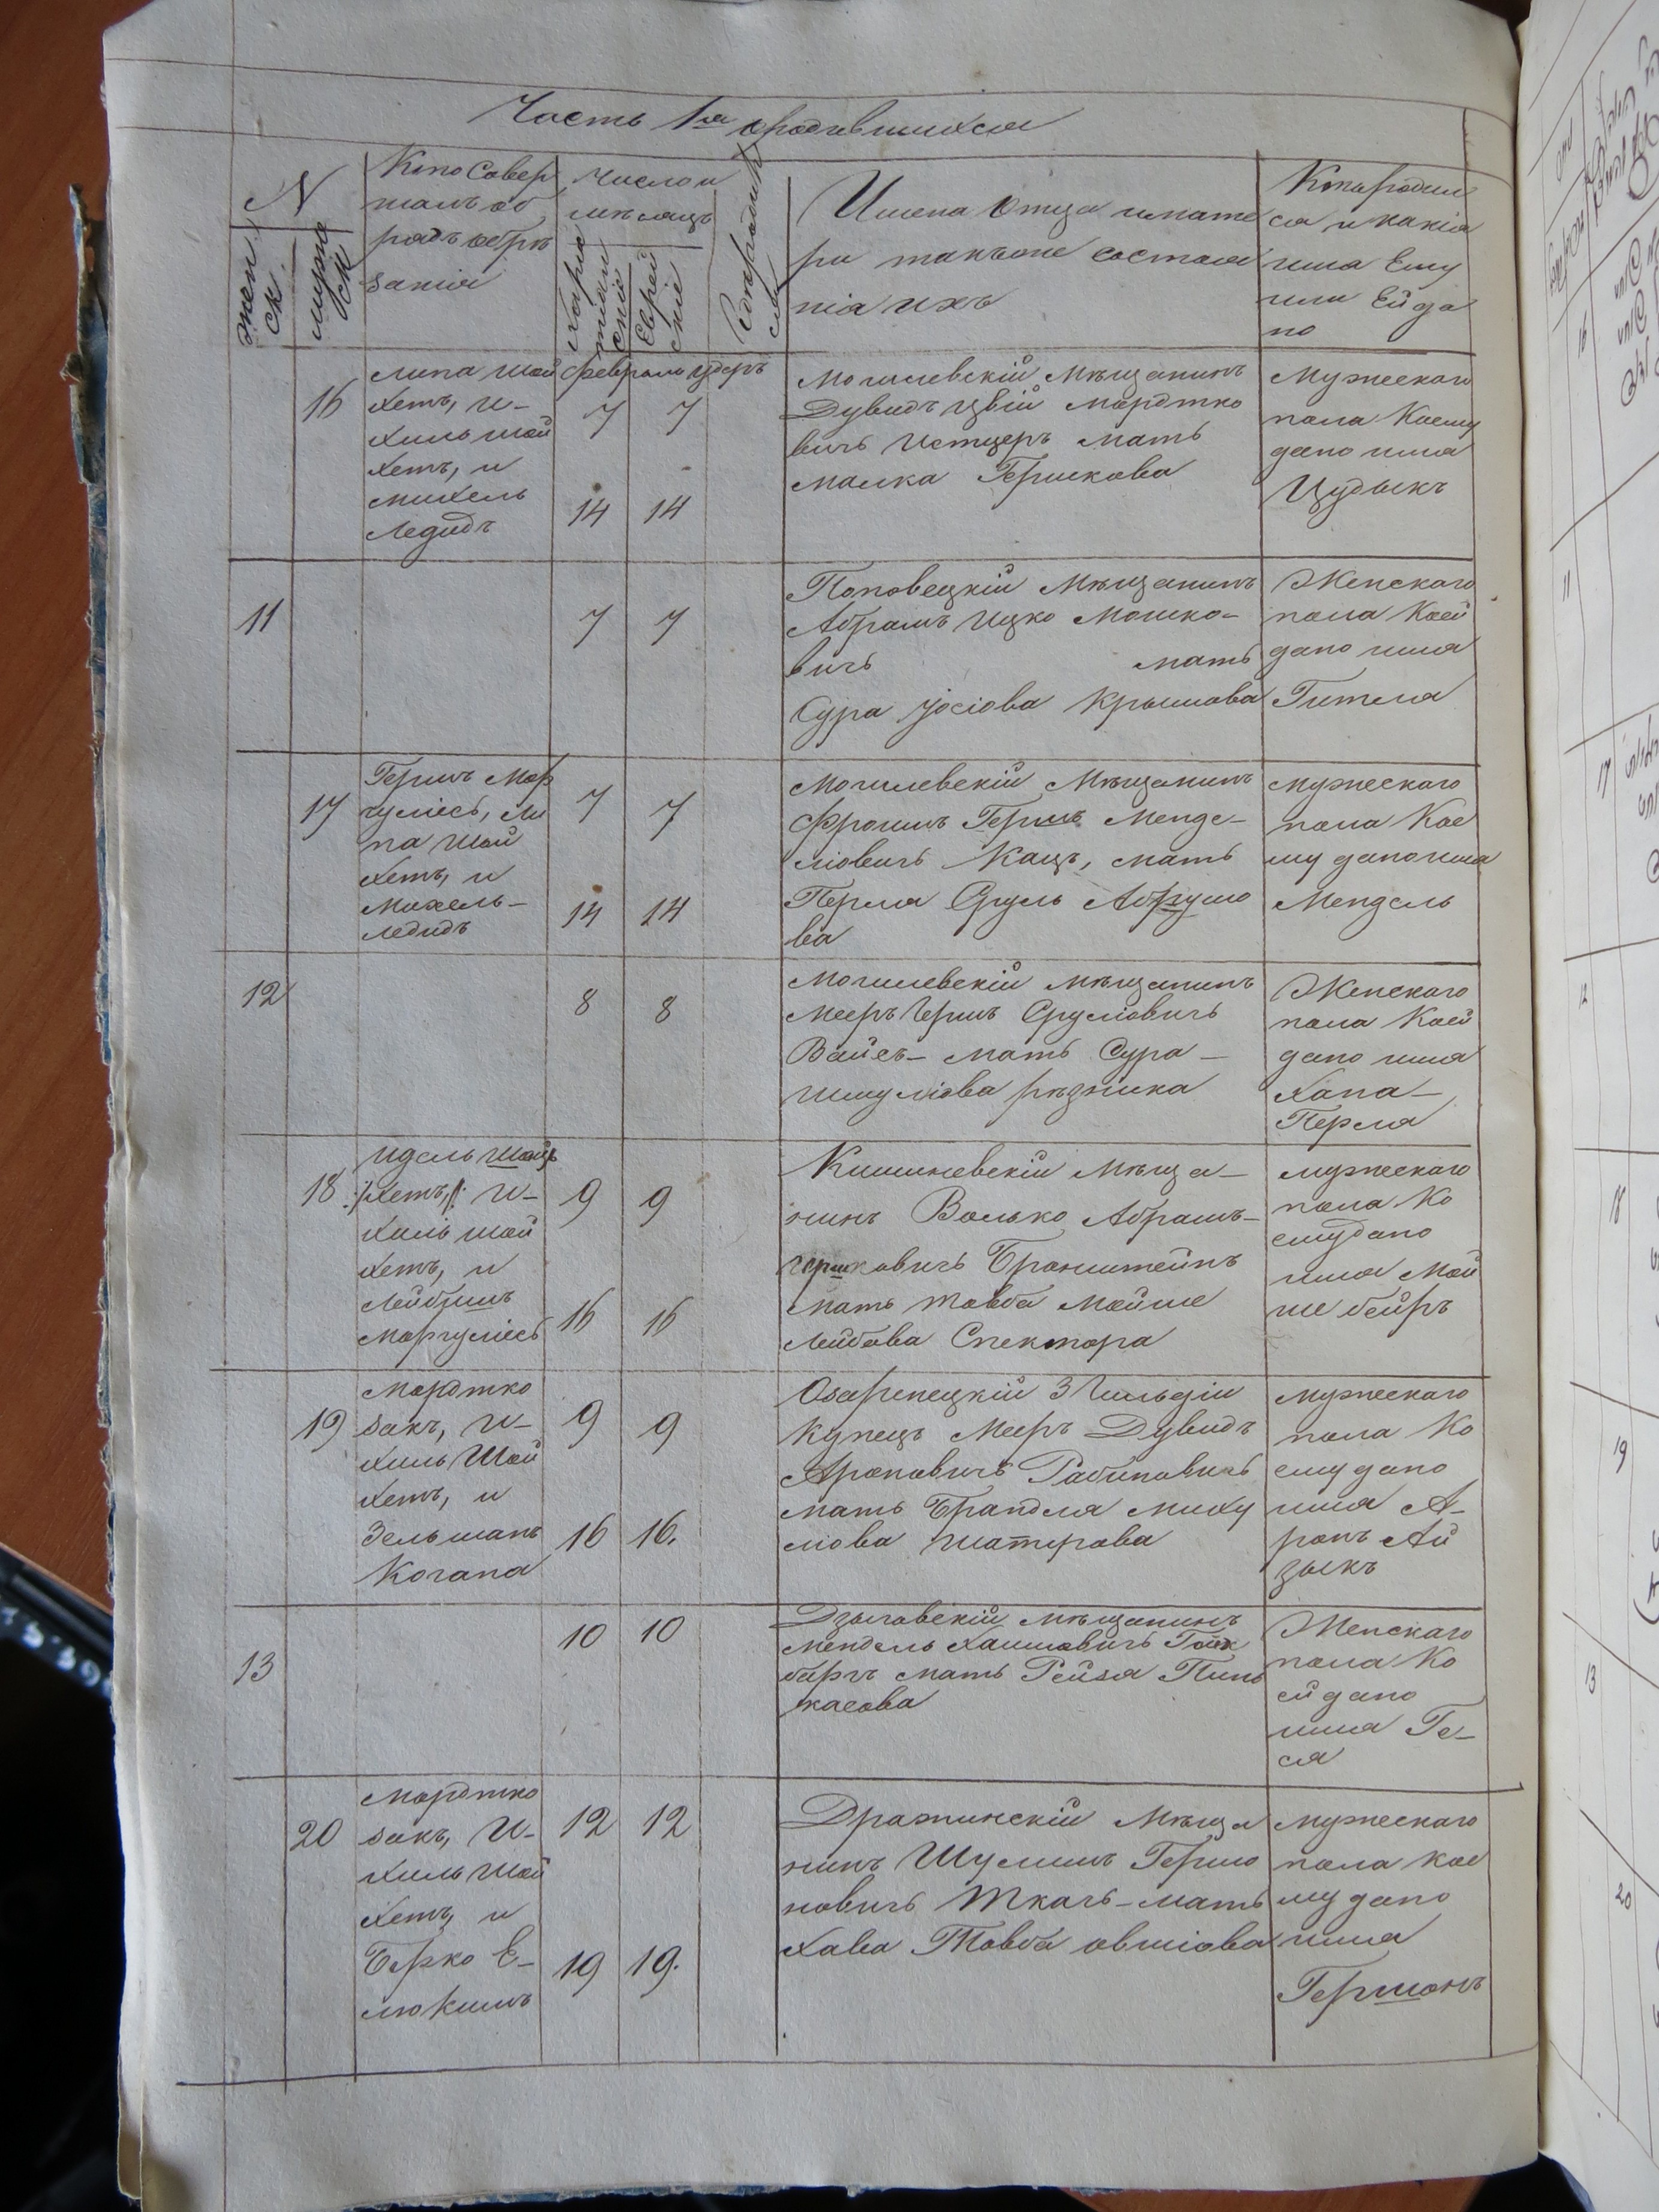 Часть 1ая о родившихся
N
Женск.
мужеск
Кто Совер
шалъ об
рядъ обрѣ
занія
Число и
мѣсяцъ
Христианскій
Еврейскіе
Гдѣ родился
Имена Отца и мате
ри также состоя
нія ихъ
Кто родил
ся и какія
имя Ему
или Ей да
но
16
Липа шой
хетъ, и-
хиль шой
хетъ, и
михель
Ледидъ
февраль удеръ
7 7
14 14
Могилевскій Мѣщанинъ
Дувидъ Цвій мордтко
вичъ Истцеръ мать
малка Гершкова
Мужескаго
пола Коему
дано имя
Цудыкъ
11
7 7
Поповецкій Мѣщанинъ
Абрамъ Ицко Мошко-
вичъ мать
Сура Іосіова Крымова
Женскаго
пола Коей
дано имя
Гителя
17
Гершъ Мар
гулиесъ, Ли
па шой
хетъ, и
Михель-
ледидъ
7 7
14 14
Могилевскій Мѣщанинъ
Фроимъ Гершъ Менде-
ліовичъ Кацъ, мать
Перля Сруль Абрумо
ва
мужескаго
пола Кое
му дано имя
Мендель
12
8 8
Могилевскій мѣщанинъ
Мееръ Гершъ Сруліовичъ
Вайсъ- мать Сура-
Шмуліова рѣзника
Женскаго
пола Коей
дано имя
Хана-
Перля
18
Идель шой
хетъ, и-
хиль шой
хетъ, и
Лейбишъ
Маргулиесъ
9 9
16 16
Кишиневскій Мѣща-
нинъ Волько Абрамъ-
Гершковичъ Бронштейнъ
мать Товба Мойше
Лейбова Спектора
мужескаго
пола Ко
ему дано
имя Мой
ше бейръ
19
Мордтко
закъ, и-
хиль Шой
хетъ, и
Зельманъ
Когана
9 9
16 16.
Озаренецкій 3 Гильдіи
Купецъ Мееръ Дувидъ
Ароновичъ Рабиновичъ
мать Брандля миху
лова Шатирова
мужескаго
пола Ко
ему дано
имя А-
ронъ Ай
зыкъ
13
10 10
Дзыговскій мѣщанинъ
Мендель Хаимовичъ Гойх
баргъ мать Рейзя Пинь
касова
Женскаго
пола Ко
ей дано
имя Ге-
ся
20
Мордтко
закъ, И-
хиль шой
хетъ, и
Берко Е-
люкимъ
12 12
19 19.
Дражинскій Мѣща
нинъ Шулимъ Гершо
новичъ Ткачъ-мать
Хава Товба овшіова
мужескаго
пола кое
му дано
имя
Гершонъ